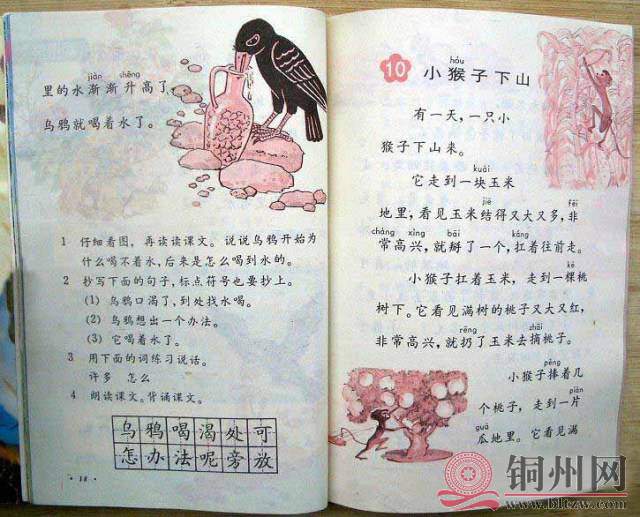 jiàn shēng
里的水渐渐升高了，
乌鸦就喝着水了。
1 仔细看图，再读读课文。说说乌鸦开始为
什么喝不着水，后来是怎么喝到水的。
2 抄写下面的句子，标点符号也要抄上。
(1) 乌鸦口渴了，到处找水喝。
(2) 乌鸦想出一个办法。
(3) 它喝着水了。
3 用下面的词练习说话。
许多 怎么
4 朗读课文。背诵课文。
乌鸦喝渴处可
怎办法呢旁放
· 18 ·
hóu
10 小猴子下山
有一天，一只小
猴子下山来。
kuài
它走到一块玉米
jiē fēi
地里，看见玉米结得又大又多，非
cháng xìng bāi káng
常高兴，就掰了一个，扛着往前走。
kē
小猴子扛着玉米，走到一棵桃
树下。它看见满树的桃子又大又红，
rēng zhāi
非常高兴，就扔了玉米去摘桃子。
pěng
小猴子捧着几
piàn
个桃子，走到一片
guā
瓜地里。它看见满
铜州网
www.bltzw.com